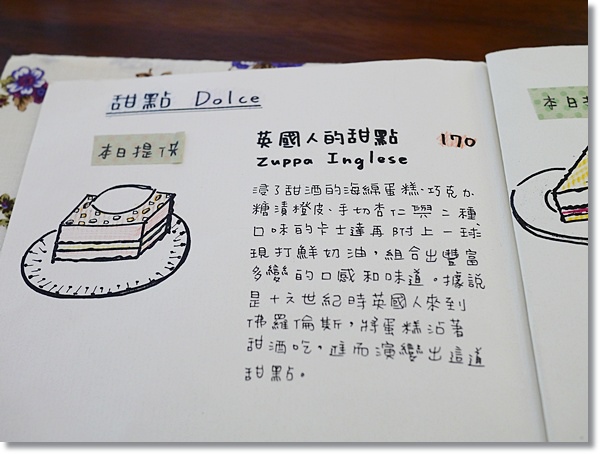 甜點 Dolce
本日提供
英國人的甜點 170
Zuppa Inglese
浸了甜酒的海綿蛋糕、巧克力、
糖漬橙皮、手切杏仁與二種
口味的卡士達再附上一球
現打鮮奶油，組合出豐富
多變的口感和味道。據說
是十六世紀時英國人來到
佛羅倫斯，將蛋糕沾著
甜酒吃，進而演變出這道
甜點。
本日